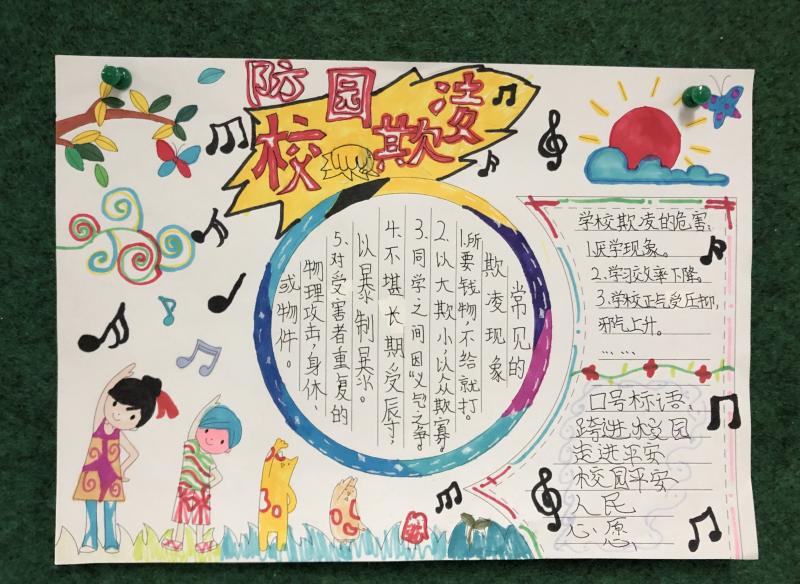 防校园欺凌
常见的
欺凌现象
1.所要钱物,不给就打。
2.以大欺小,以众欺寡。
3.同学之间因“义气”之争。
4.不堪长期受辱,
以暴制暴。
5.对受害者重复的
物理攻击,身体、
或物件。
学校欺凌的危害:
1.厌学现象。
2.学习效率下降。
3.学校正气受压抑,
邪气上升。
... ...
口号标语:
跨进校园
走进平安
校园平安
人民
心愿